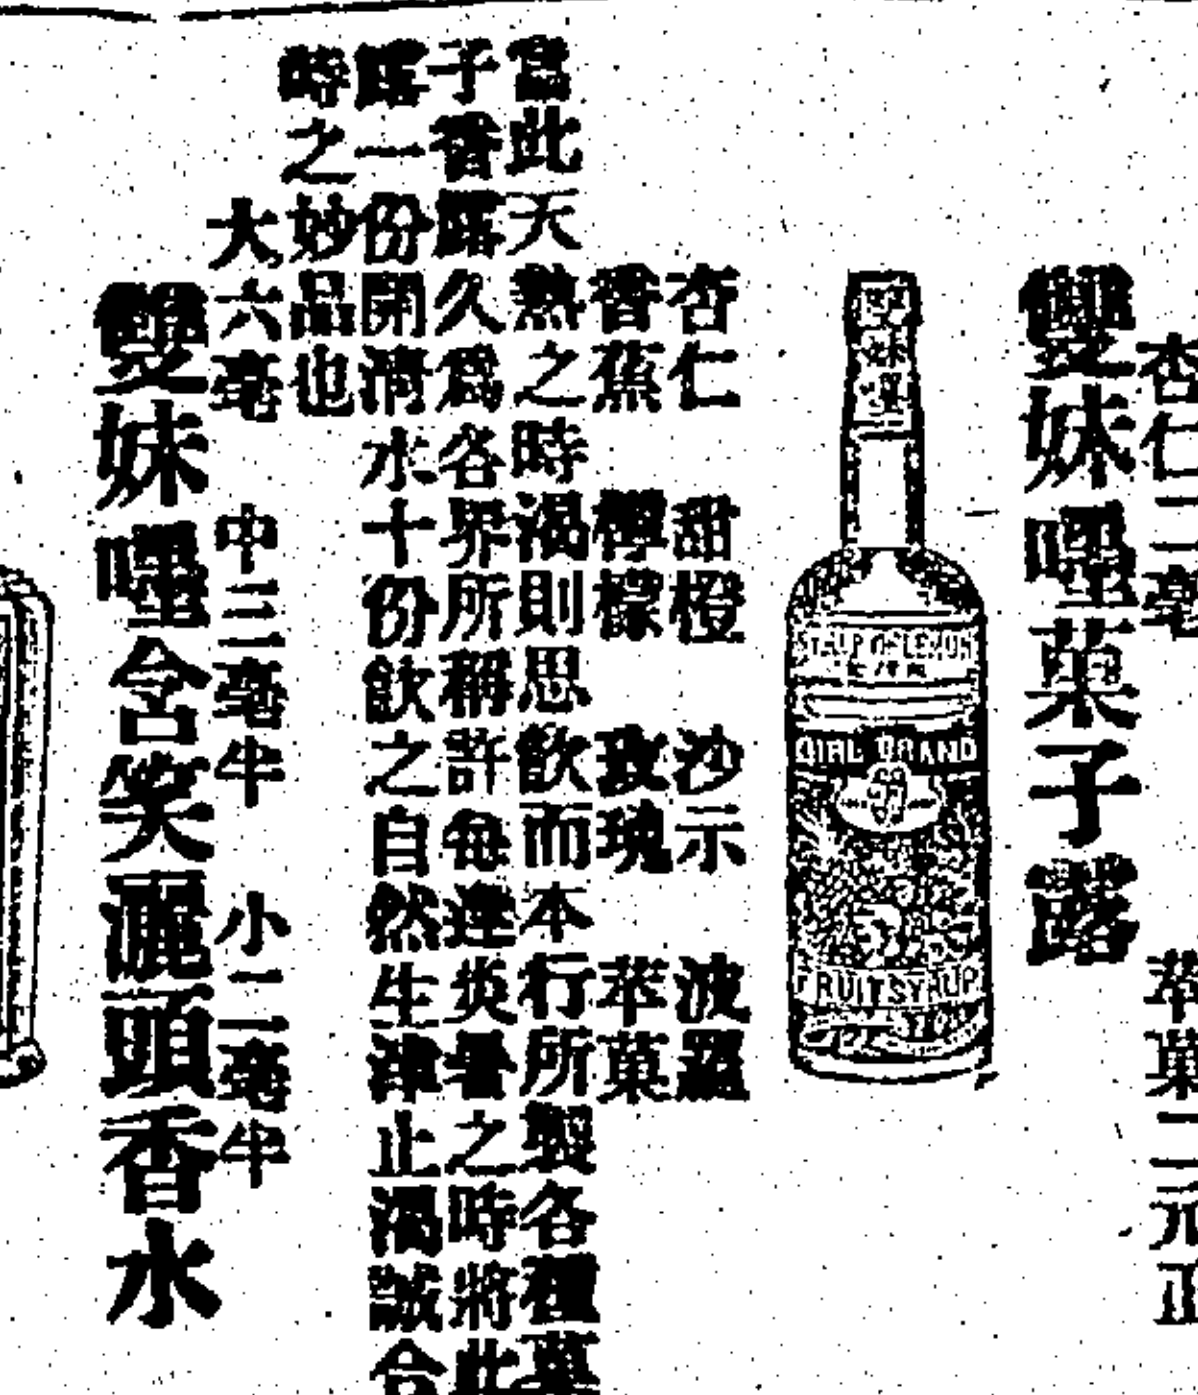 杏仁二毫
苹菓二元正
雙妹嘜菓子露
雙妹嘜
GIRL BRAND
FRUIT SYRUP
杏仁 甜橙 沙示 波羅
香蕉 檸檬 玫瑰 苹菓
當此天熱之時渴則思飲而本行所製各種菓
子香露久爲各界所稱許每逢炎暑之時將此
露一份開清水十份飲之自然生津止渴誠合
時之妙品也
大六毫 中三毫半 小二毫半
雙妹嘜含笑灑頭香水